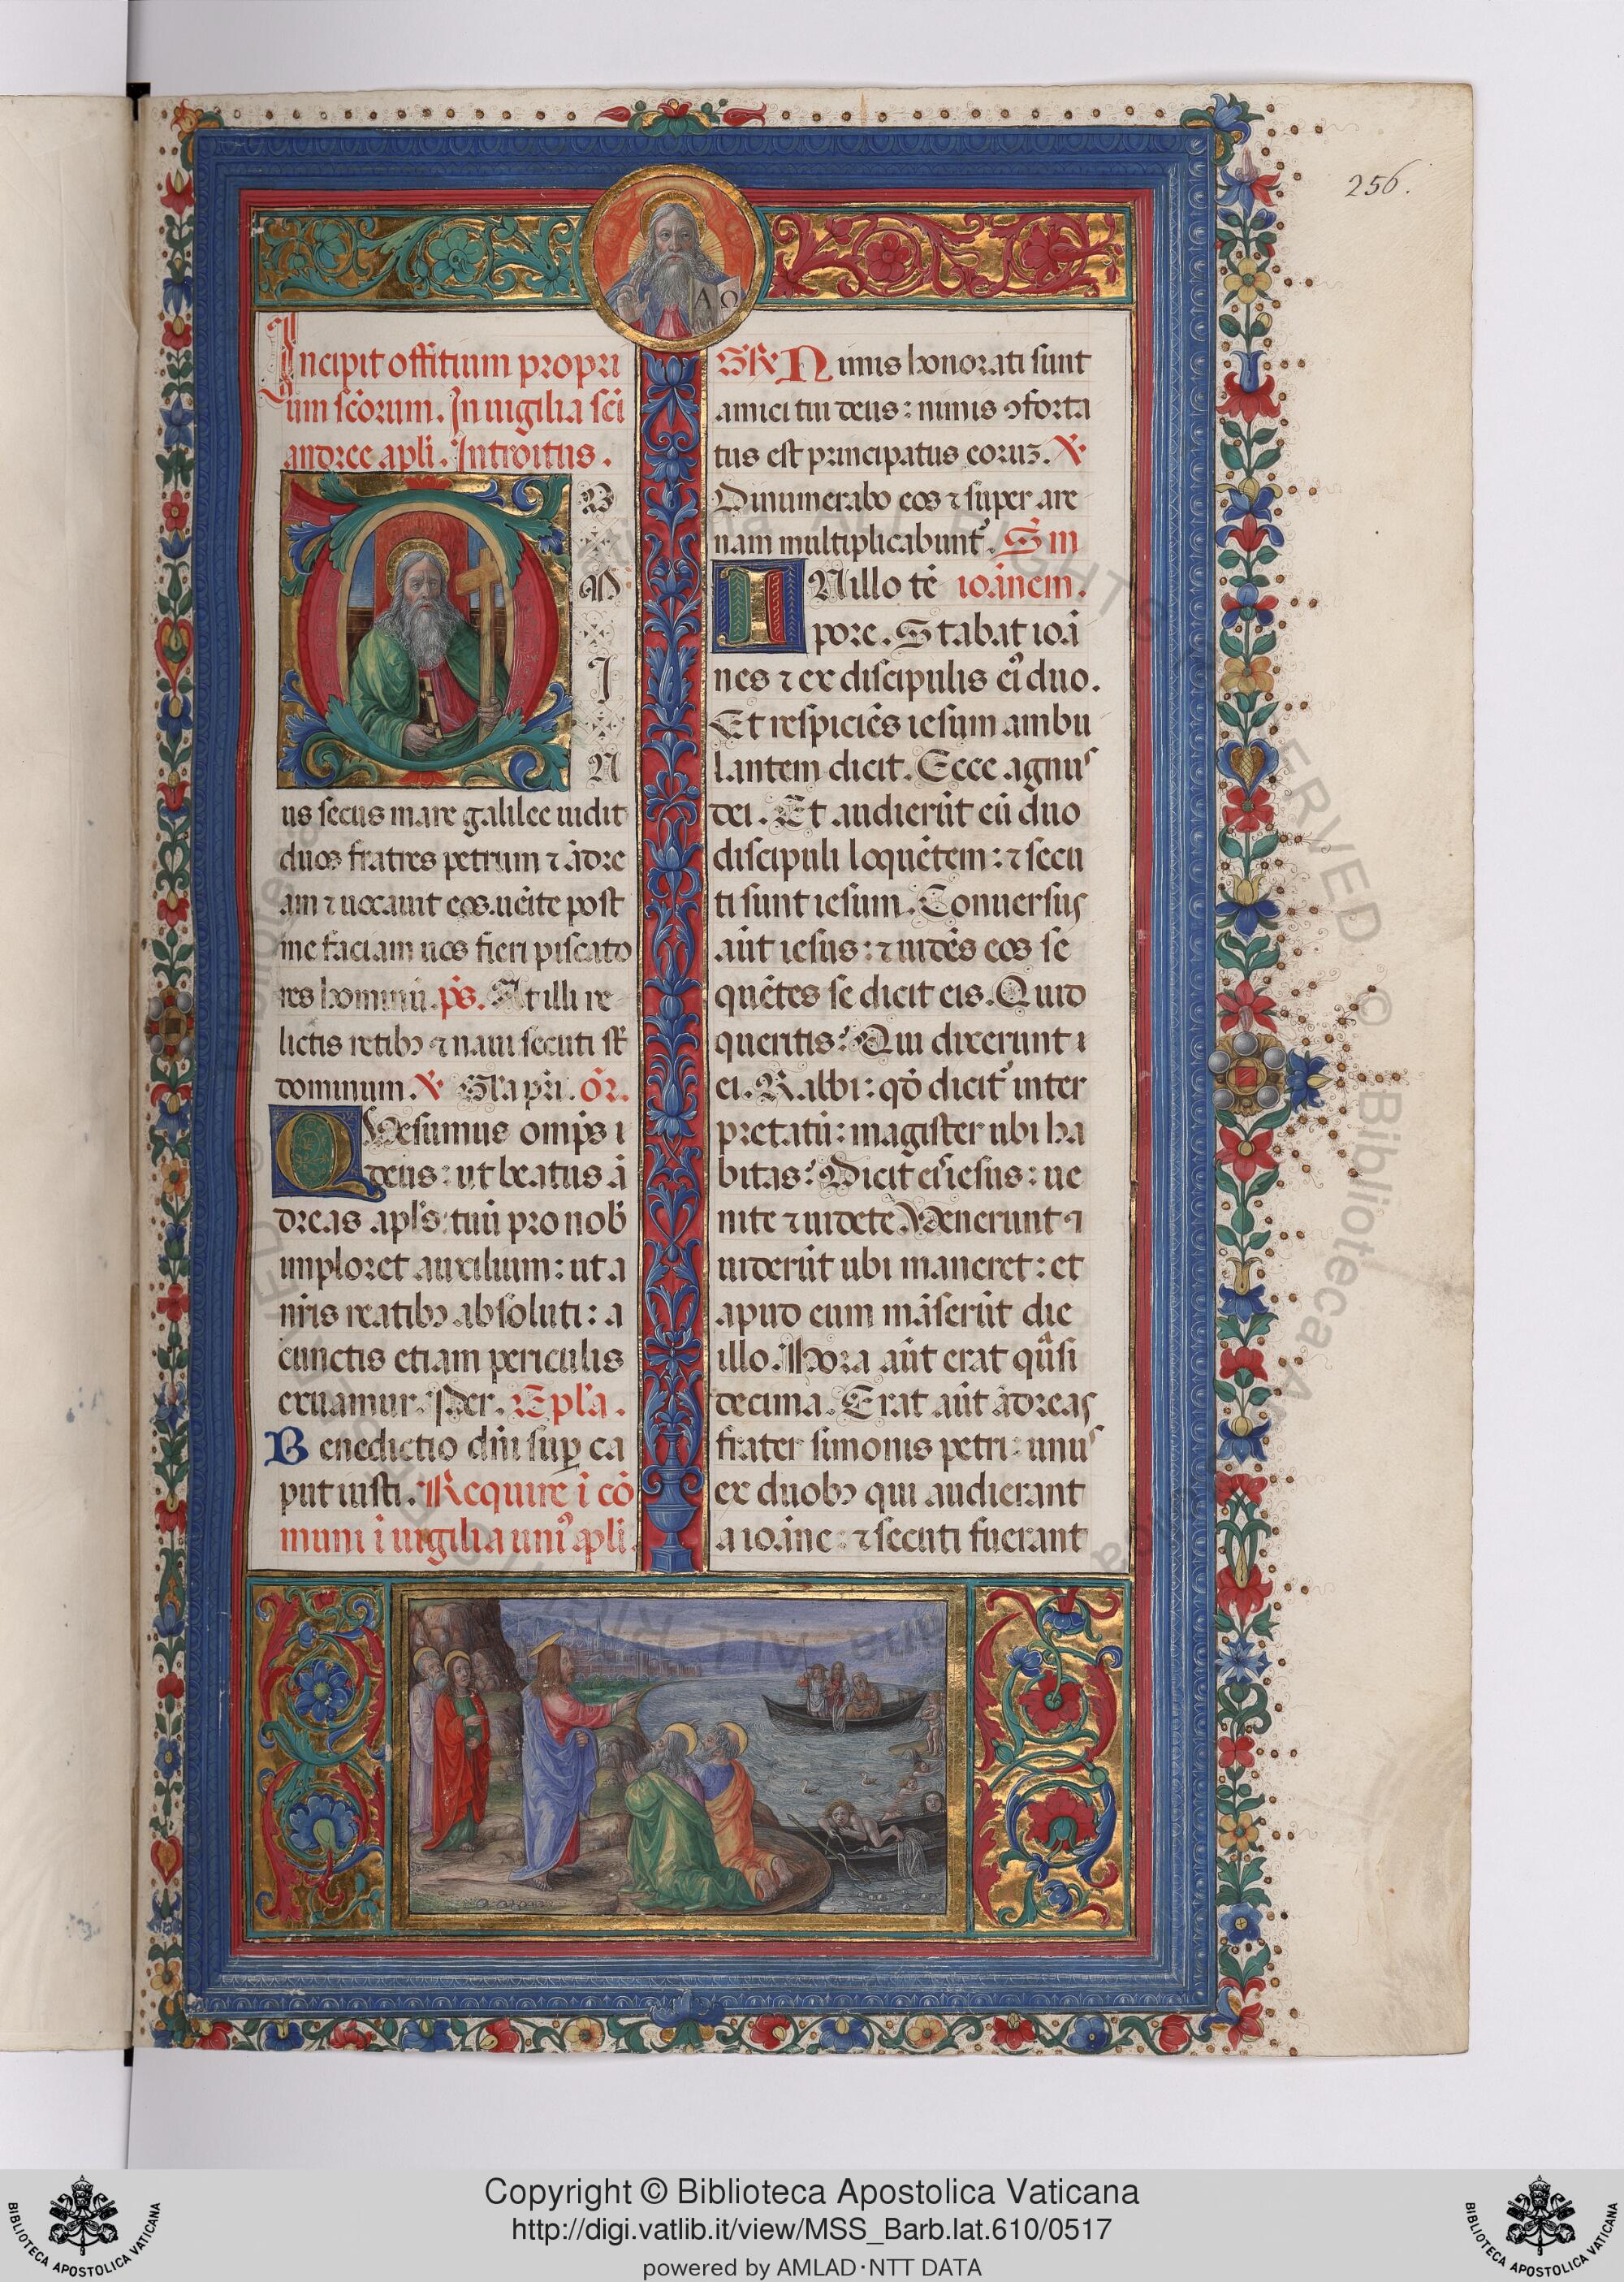 256.
A Ω
Incipit offitium propri
um sc̄orum. In uigilia sc̄i
andree apl̄i. Introitus.
D
O
M
I
N
us secus mare galilee uidit
duos fratres petrum ⁊ ādre
am ⁊ uocauit eos. uēite post
me faciam uos fieri piscato
res hominū. p̄s. At illi re
lictis retibꝫ ⁊ naui secuti st̄
dominum. ℣ Gl̄a pr̄i. Or̄.
QVesumus omp̄s
deus: ut beatus ā
dreas apl̄s tuū pro nob̄
imploret auxilium: ut a
nr̄is reatibꝫ absoluti: a
cunctis etiam periculis
exuamur. Per. Epl̄a.
Benedictio dn̄i suꝑ ca
put iusti. Require ī cō
muni ī uigilia uniꝰ apl̄i.
GR̄ Nimis honorati sunt
amici tui deus: nimis ꝯforta
tus est principatus eoruꝫ. ℣
Dinumerabo eos ⁊ super are
nam multiplicabunt᷑. S̄m
INillo tē ioānem.
pore. Stabat ioā
nes ⁊ ex discipulis eiꝰ duo.
Et respiciēs iesum ambu
lantem dicit. Ecce agnus
dei. Et audierūt eū duo
discipuli loquētem: ⁊ secu
ti sunt iesum. Conuersus
aūt iesus: ⁊ uidēs eos se
quētes se dicit eis. Quid
queritis? Qui dixerunt
ei. Rabbi: qō dicit᷑ inter
pretatū: magister ubi ha
bitas? Dicit eis iesus: ue
nite ⁊ uidete. Venerunt ⁊
uiderūt ubi maneret: et
apud eum māserūt die
illo. Hora aūt erat quāsi
decima. Erat aūt ādreas
frater simonis petri: unus
ex duobꝫ qui audierant
a ioāne: ⁊ secuti fuerant
Copyright © Biblioteca Apostolica Vaticana
http://digi.vatlib.it/view/MSS_Barb.lat.610/0517
powered by AMLAD·NTT DATA
BIBLIOTECA APOSTOLICA VATICANA
BIBLIOTECA APOSTOLICA VATICANA